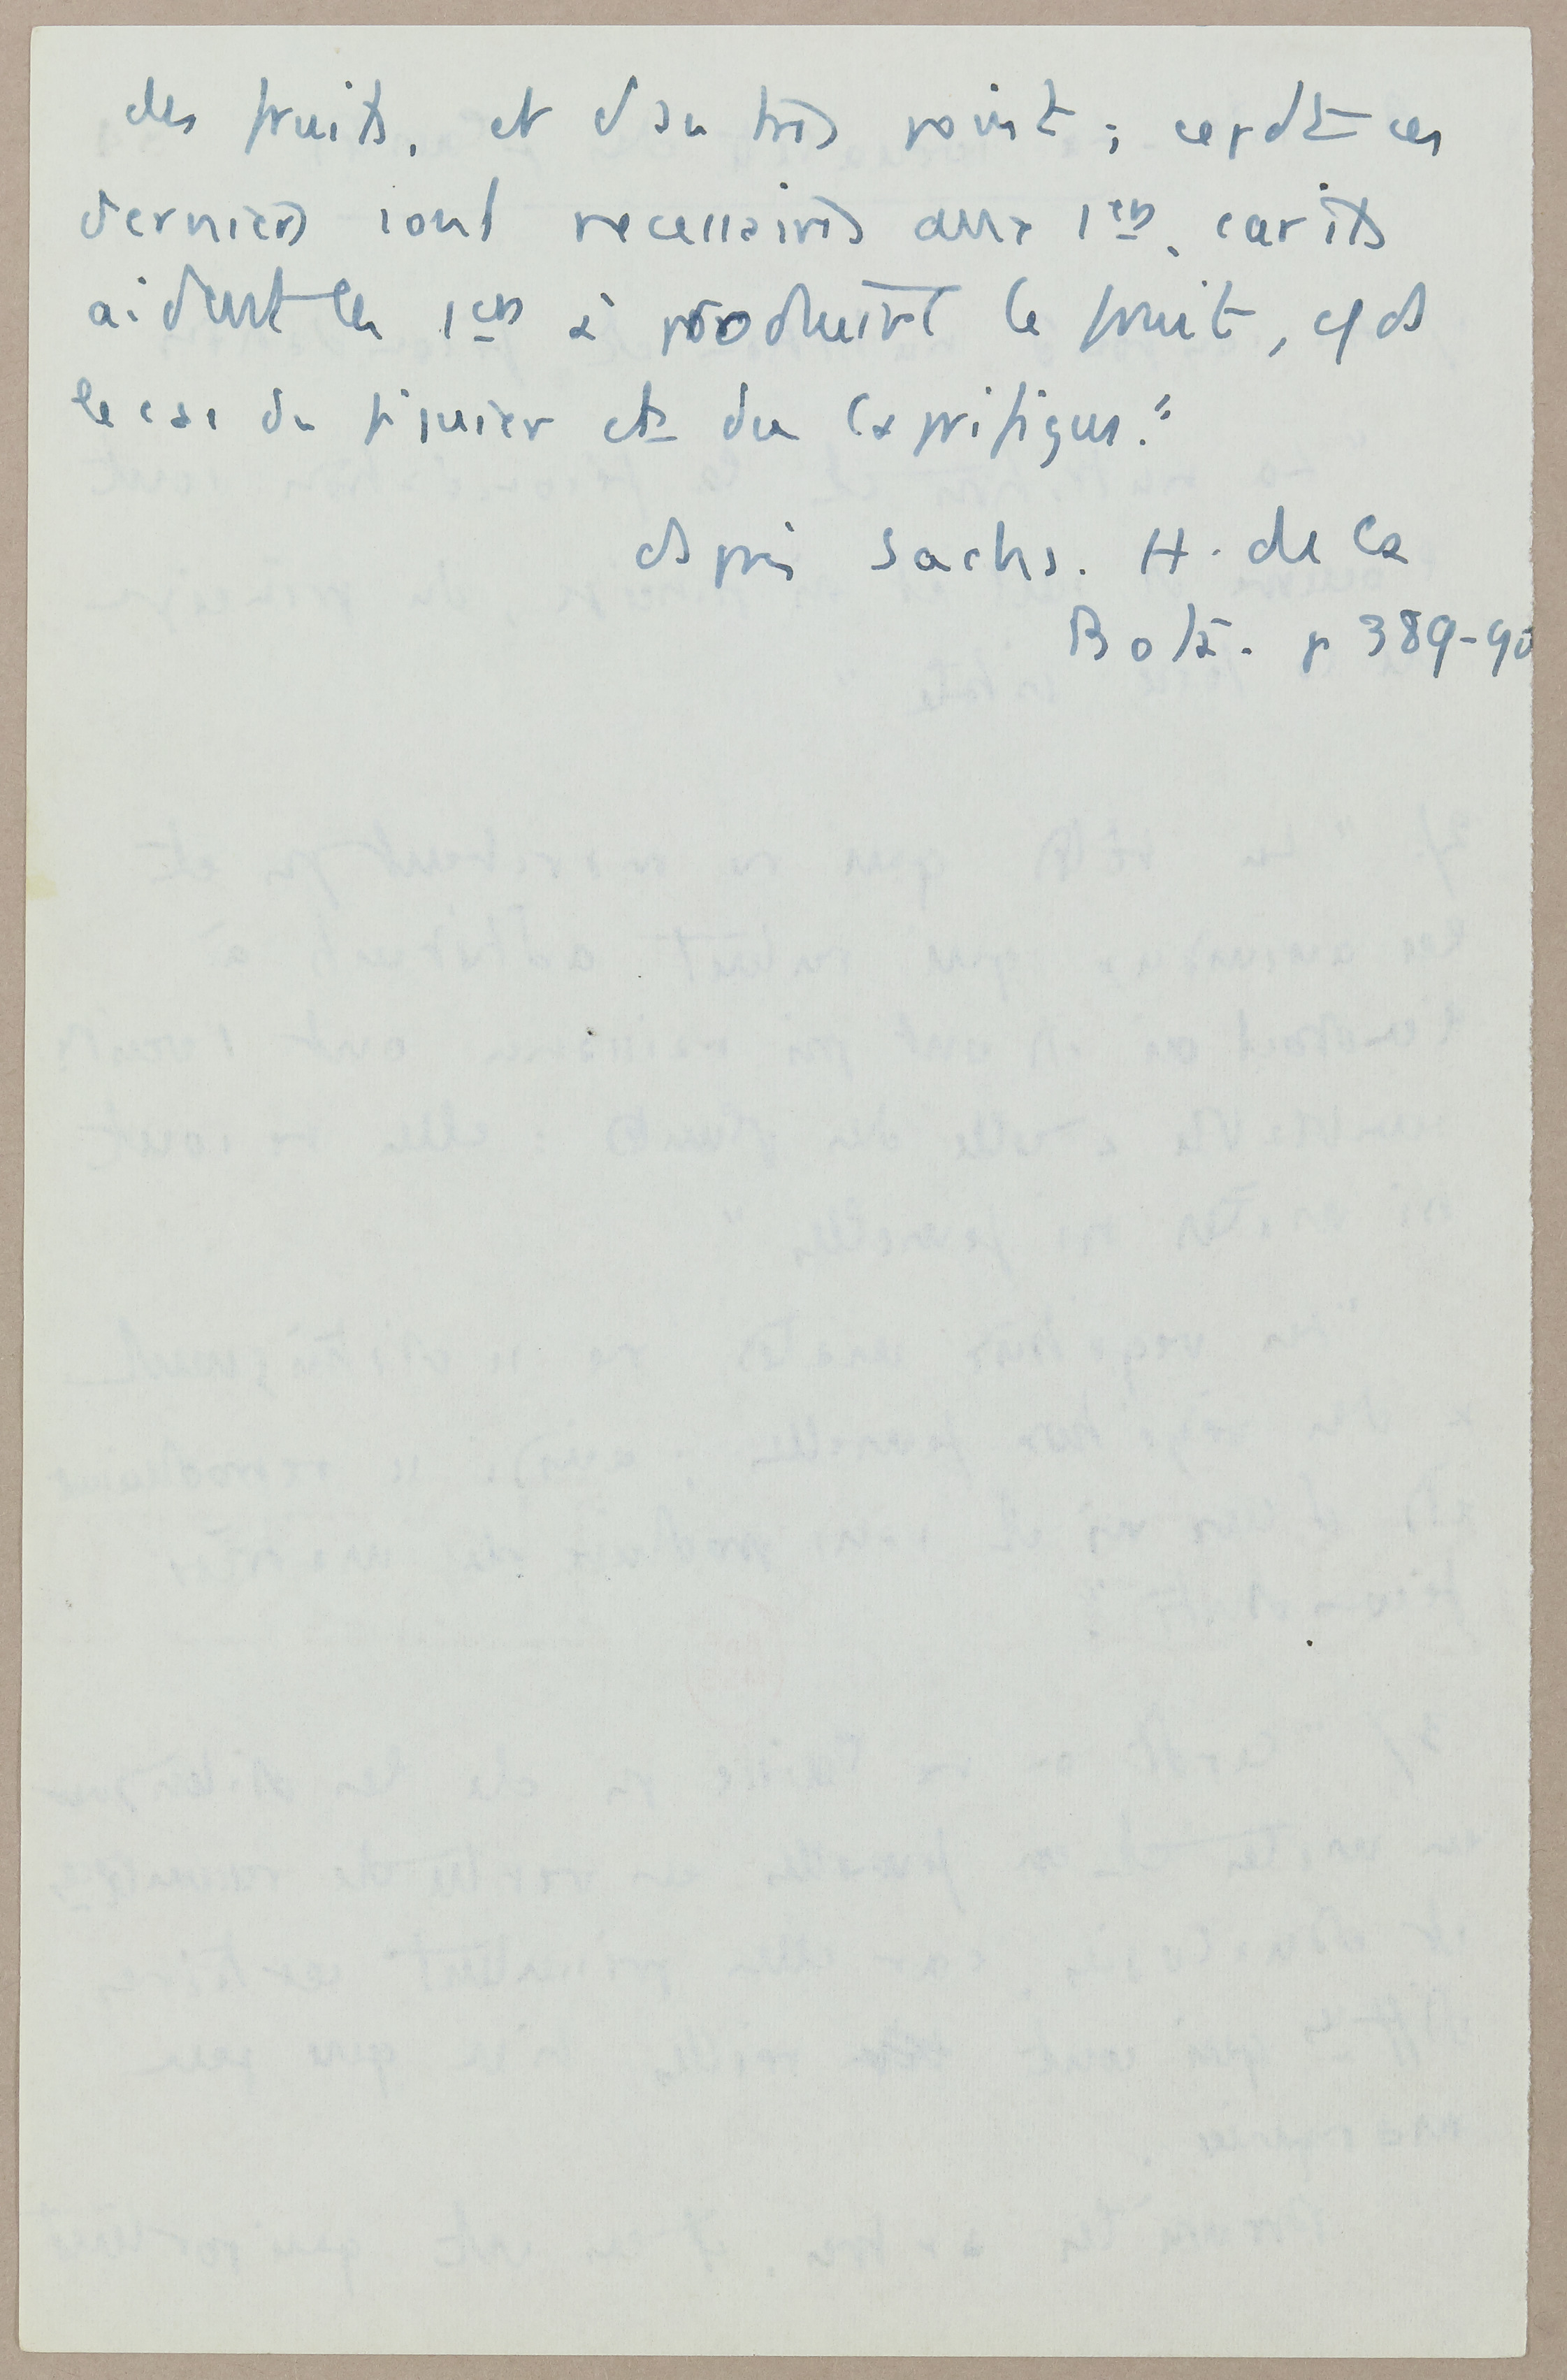 des fruits, et d'autres point ; cepdt ces
derniers sont necessaires aux 1ers, car ils
aident les 1ers à produire le fruit, c
le cas du figuier et du Caprifigus."
d'après Sachs. H. de la
Bot. p 389-90